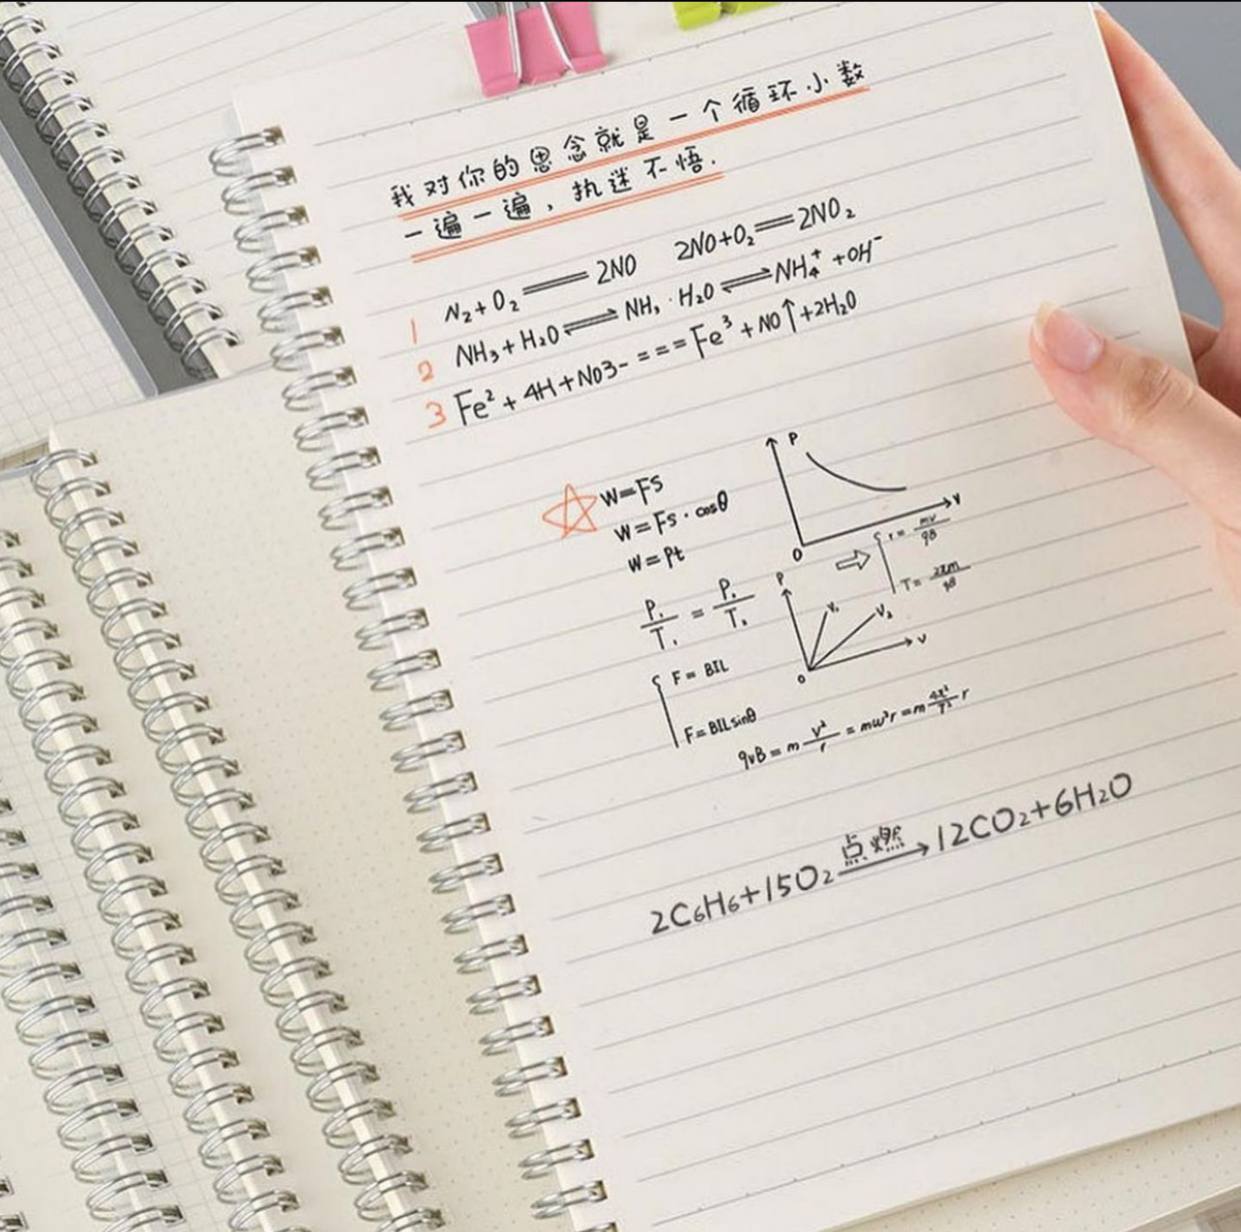 我对你的思念就是一个循环小数
一遍一遍，执迷不悟.
1 N₂+O₂══2NO 2NO+O₂══2NO₂
2 NH₃+H₂O⇌NH₃·H₂O⇌NH₄⁺+OH⁻
3 Fe²+4H+NO3-===Fe³+NO↑+2H₂O
W=FS
W=Fs·cosθ
W=Pt
P
V
O
r=mv/qB
T=2πm/qB
P₁/T₁=P₂/T₂
P
V₁
V₂
V
O
F=BIL
F=BILsinθ
qvB=m v²/r=mω²r=m 4π²/T² r
2C₆H₆+15O₂ 点燃→12CO₂+6H₂O